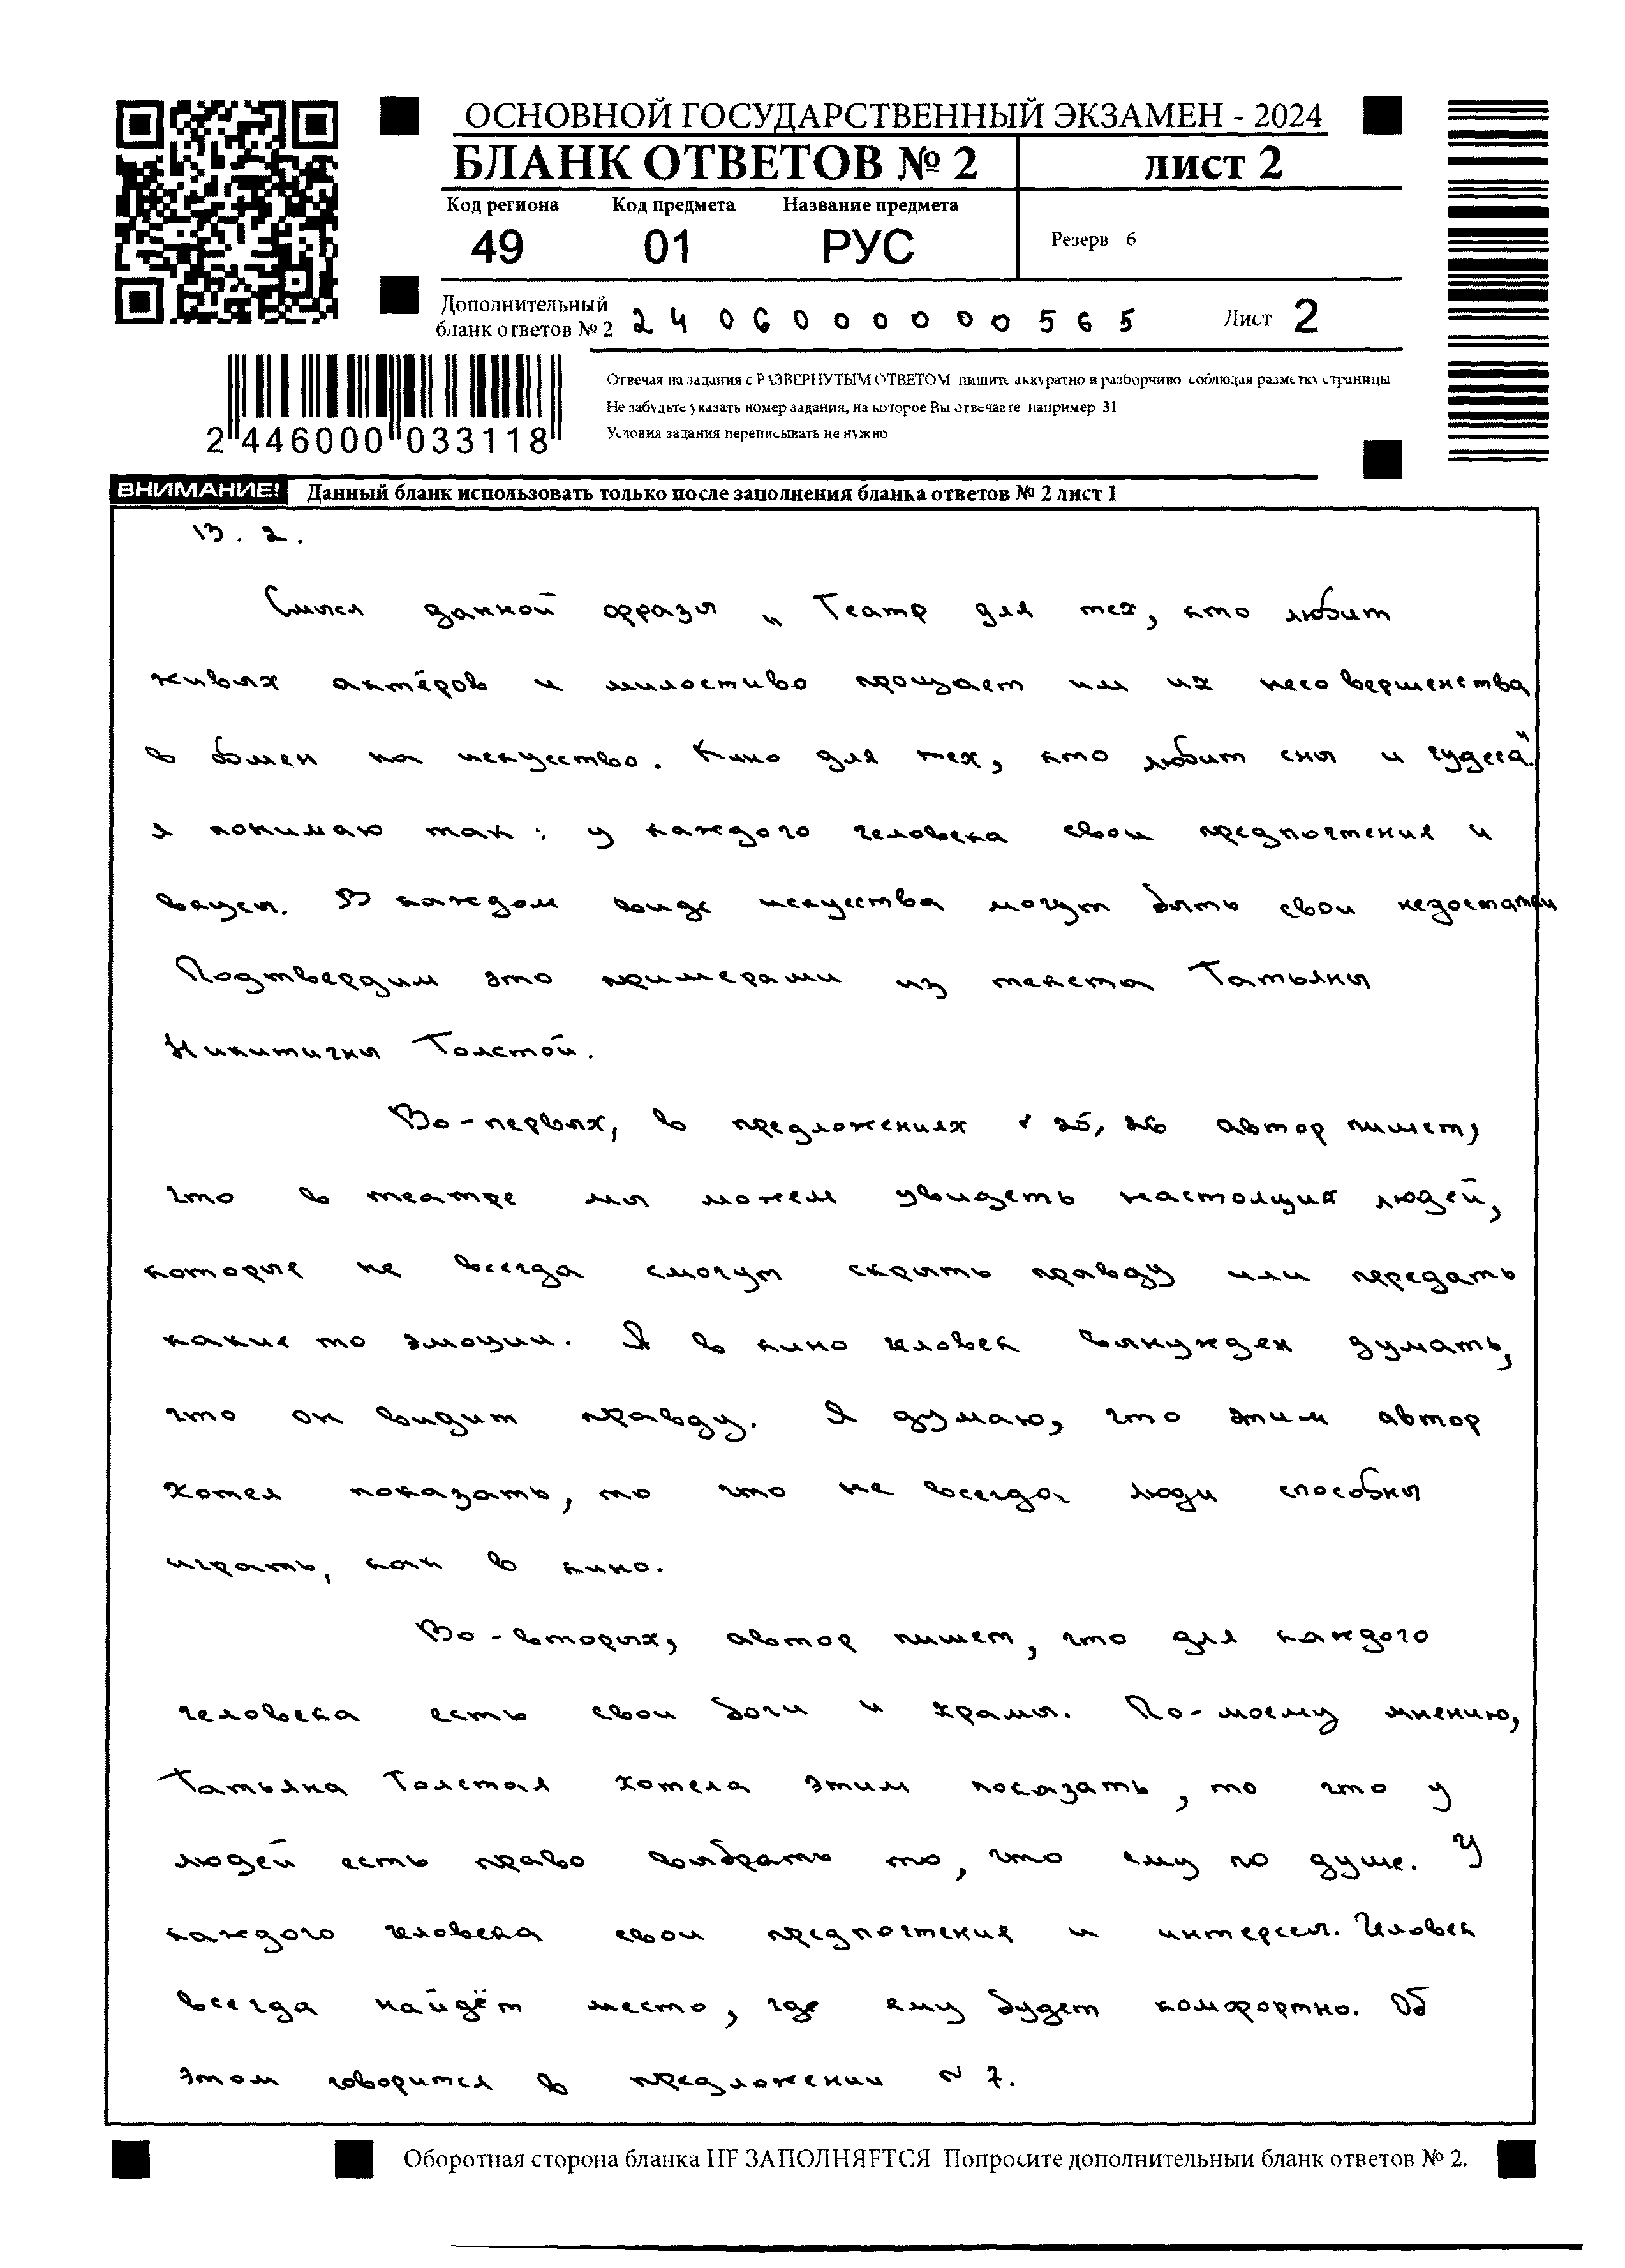 ОСНОВНОЙ ГОСУДАРСТВЕННЫЙ ЭКЗАМЕН - 2024
БЛАНК ОТВЕТОВ № 2 лист 2
Код региона Код предмета Название предмета
49 01 РУС Резерв 6
Дополнительный
бланк ответов № 2 2406000000565 Лист 2
Отвечая на задания с РАЗВЕРНУТЫМ ОТВЕТОМ пишите аккуратно и разборчиво соблюдая разметку страницы
Не забудьте указать номер задания, на которое Вы отвечаете например 31
Условия задания переписывать не нужно
2 446000 033118
ВНИМАНИЕ! Данный бланк использовать только после заполнения бланка ответов № 2 лист 1
13.2.
Смысл данной фразы „Театр для тех, кто любит
живых актёров и милостиво прощает им их несовершенства
в обмен на искусство. Кино для тех, кто любит сны и чудеса".
я понимаю так: у каждого человека свои предпочтения и
вкусы. В каждом виде искуства могут быть свои недостатки
Подтвердим это примерами из текста Татьяны
Никитичны Толстой.
Во-первых, в предложениях 25, 26 автор пишет,
что в театре мы можем увидеть настоящих людей,
которые не всегда смогут скрыть правду или передать
какие то эмоции. А в кино человек вынужден думать,
что он видит правду. Я думаю, что этим автор
хотел показать, то что не всегда люди способны
играть, как в кино.
Во-вторых, автор пишет, что для каждого
человека есть свои боги и храмы. По-моему мнению,
Татьяна Толстая хотела этим показать, то что у
людей есть право выбрать то, что ему по душе. У
каждого человека свои предпочтения и интересы. Человек
всегда найдёт место, где ему будет комфортно. Об
этом говорится в предложении N 7.
Оборотная сторона бланка НЕ ЗАПОЛНЯЕТСЯ Попросите дополнительный бланк ответов № 2.